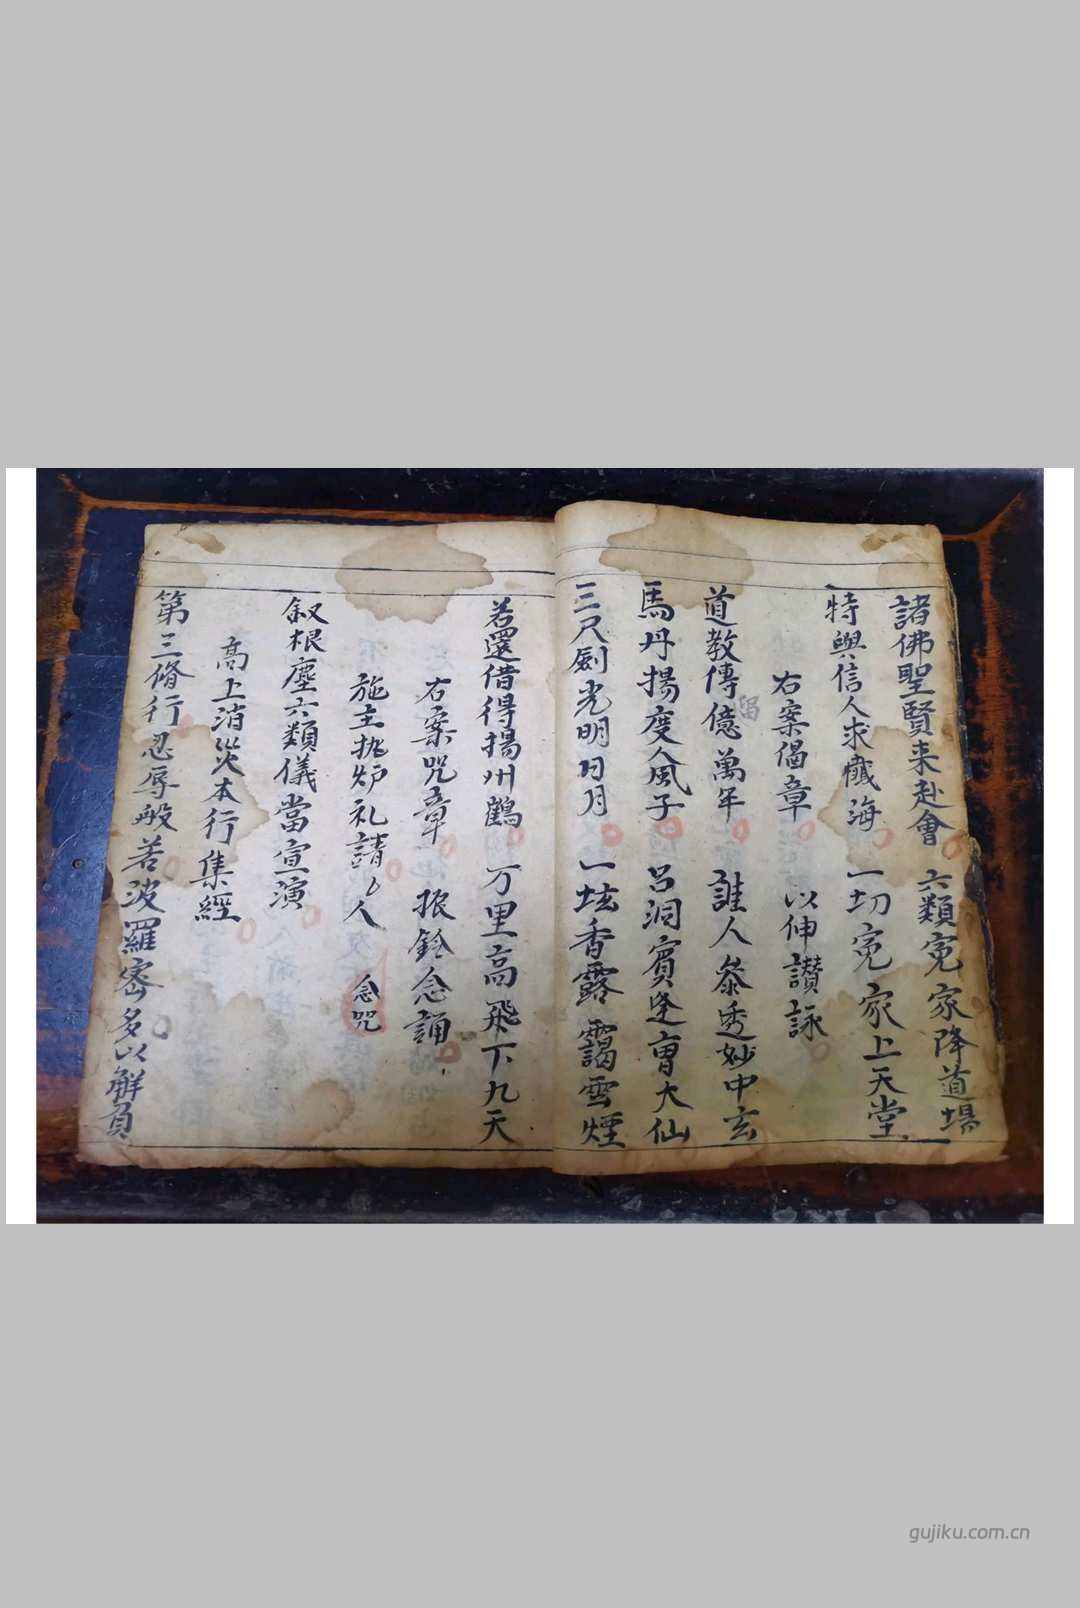 諸佛聖賢来赴會 六類冤家降道場
特與信人求懺海 一切冤家上天堂
右案偈章 以伸讃詠
道教傳億萬年 誰人叅透妙中玄
馬丹揚度人風子 呂洞賓逢曺大仙
三尺劍光明日月 一坛香露靄雲煙
若還借得揚州鶴 万里高飛下九天
右案咒章 振鈴念誦
施主执炉礼請〻人 念咒
叙根塵六類儀當宣演
高上消災本行集經
第三脩行忍辱般若波羅密多以解負
gujiku.com.cn